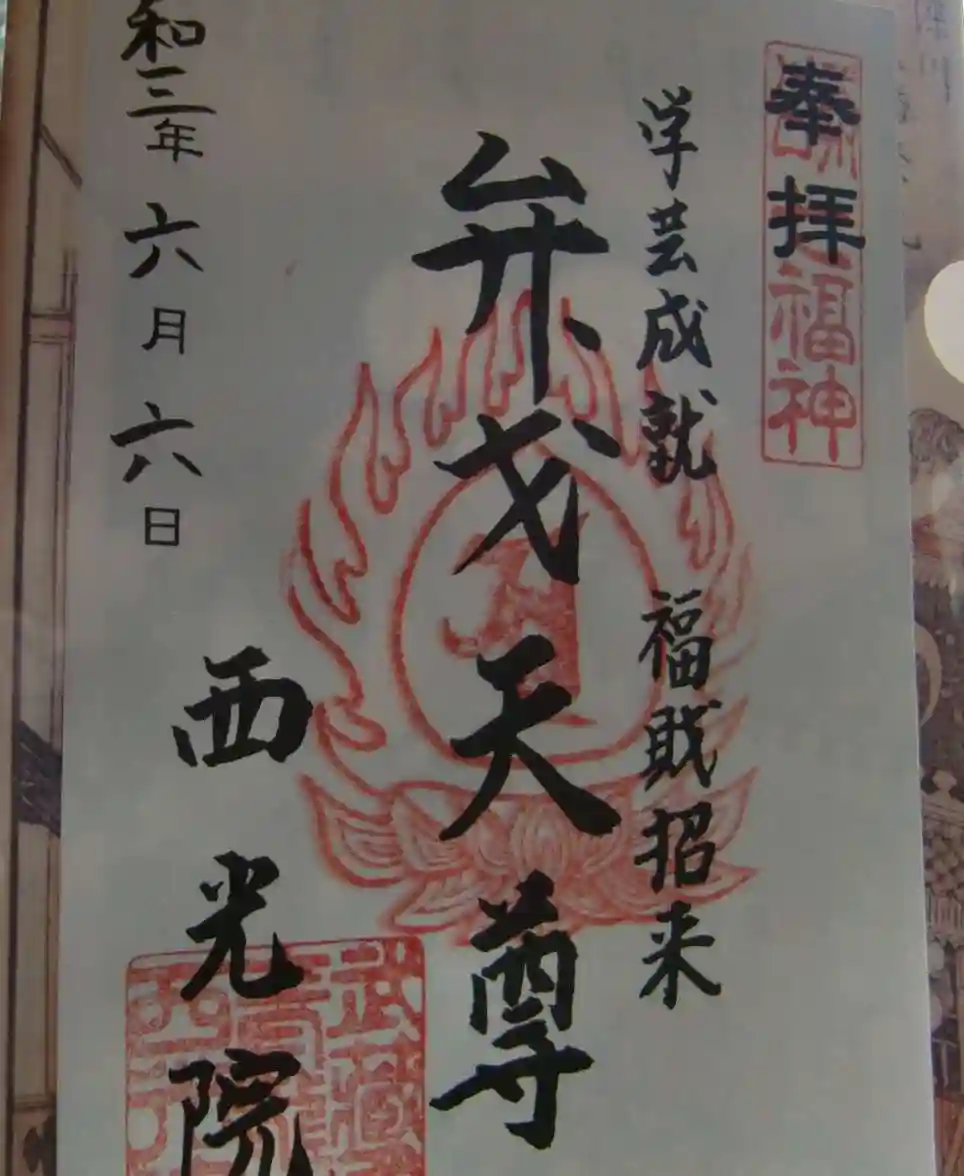 奉拝
福神
学芸成就 福財招来
弁才天尊
西光院
和三年六月六日